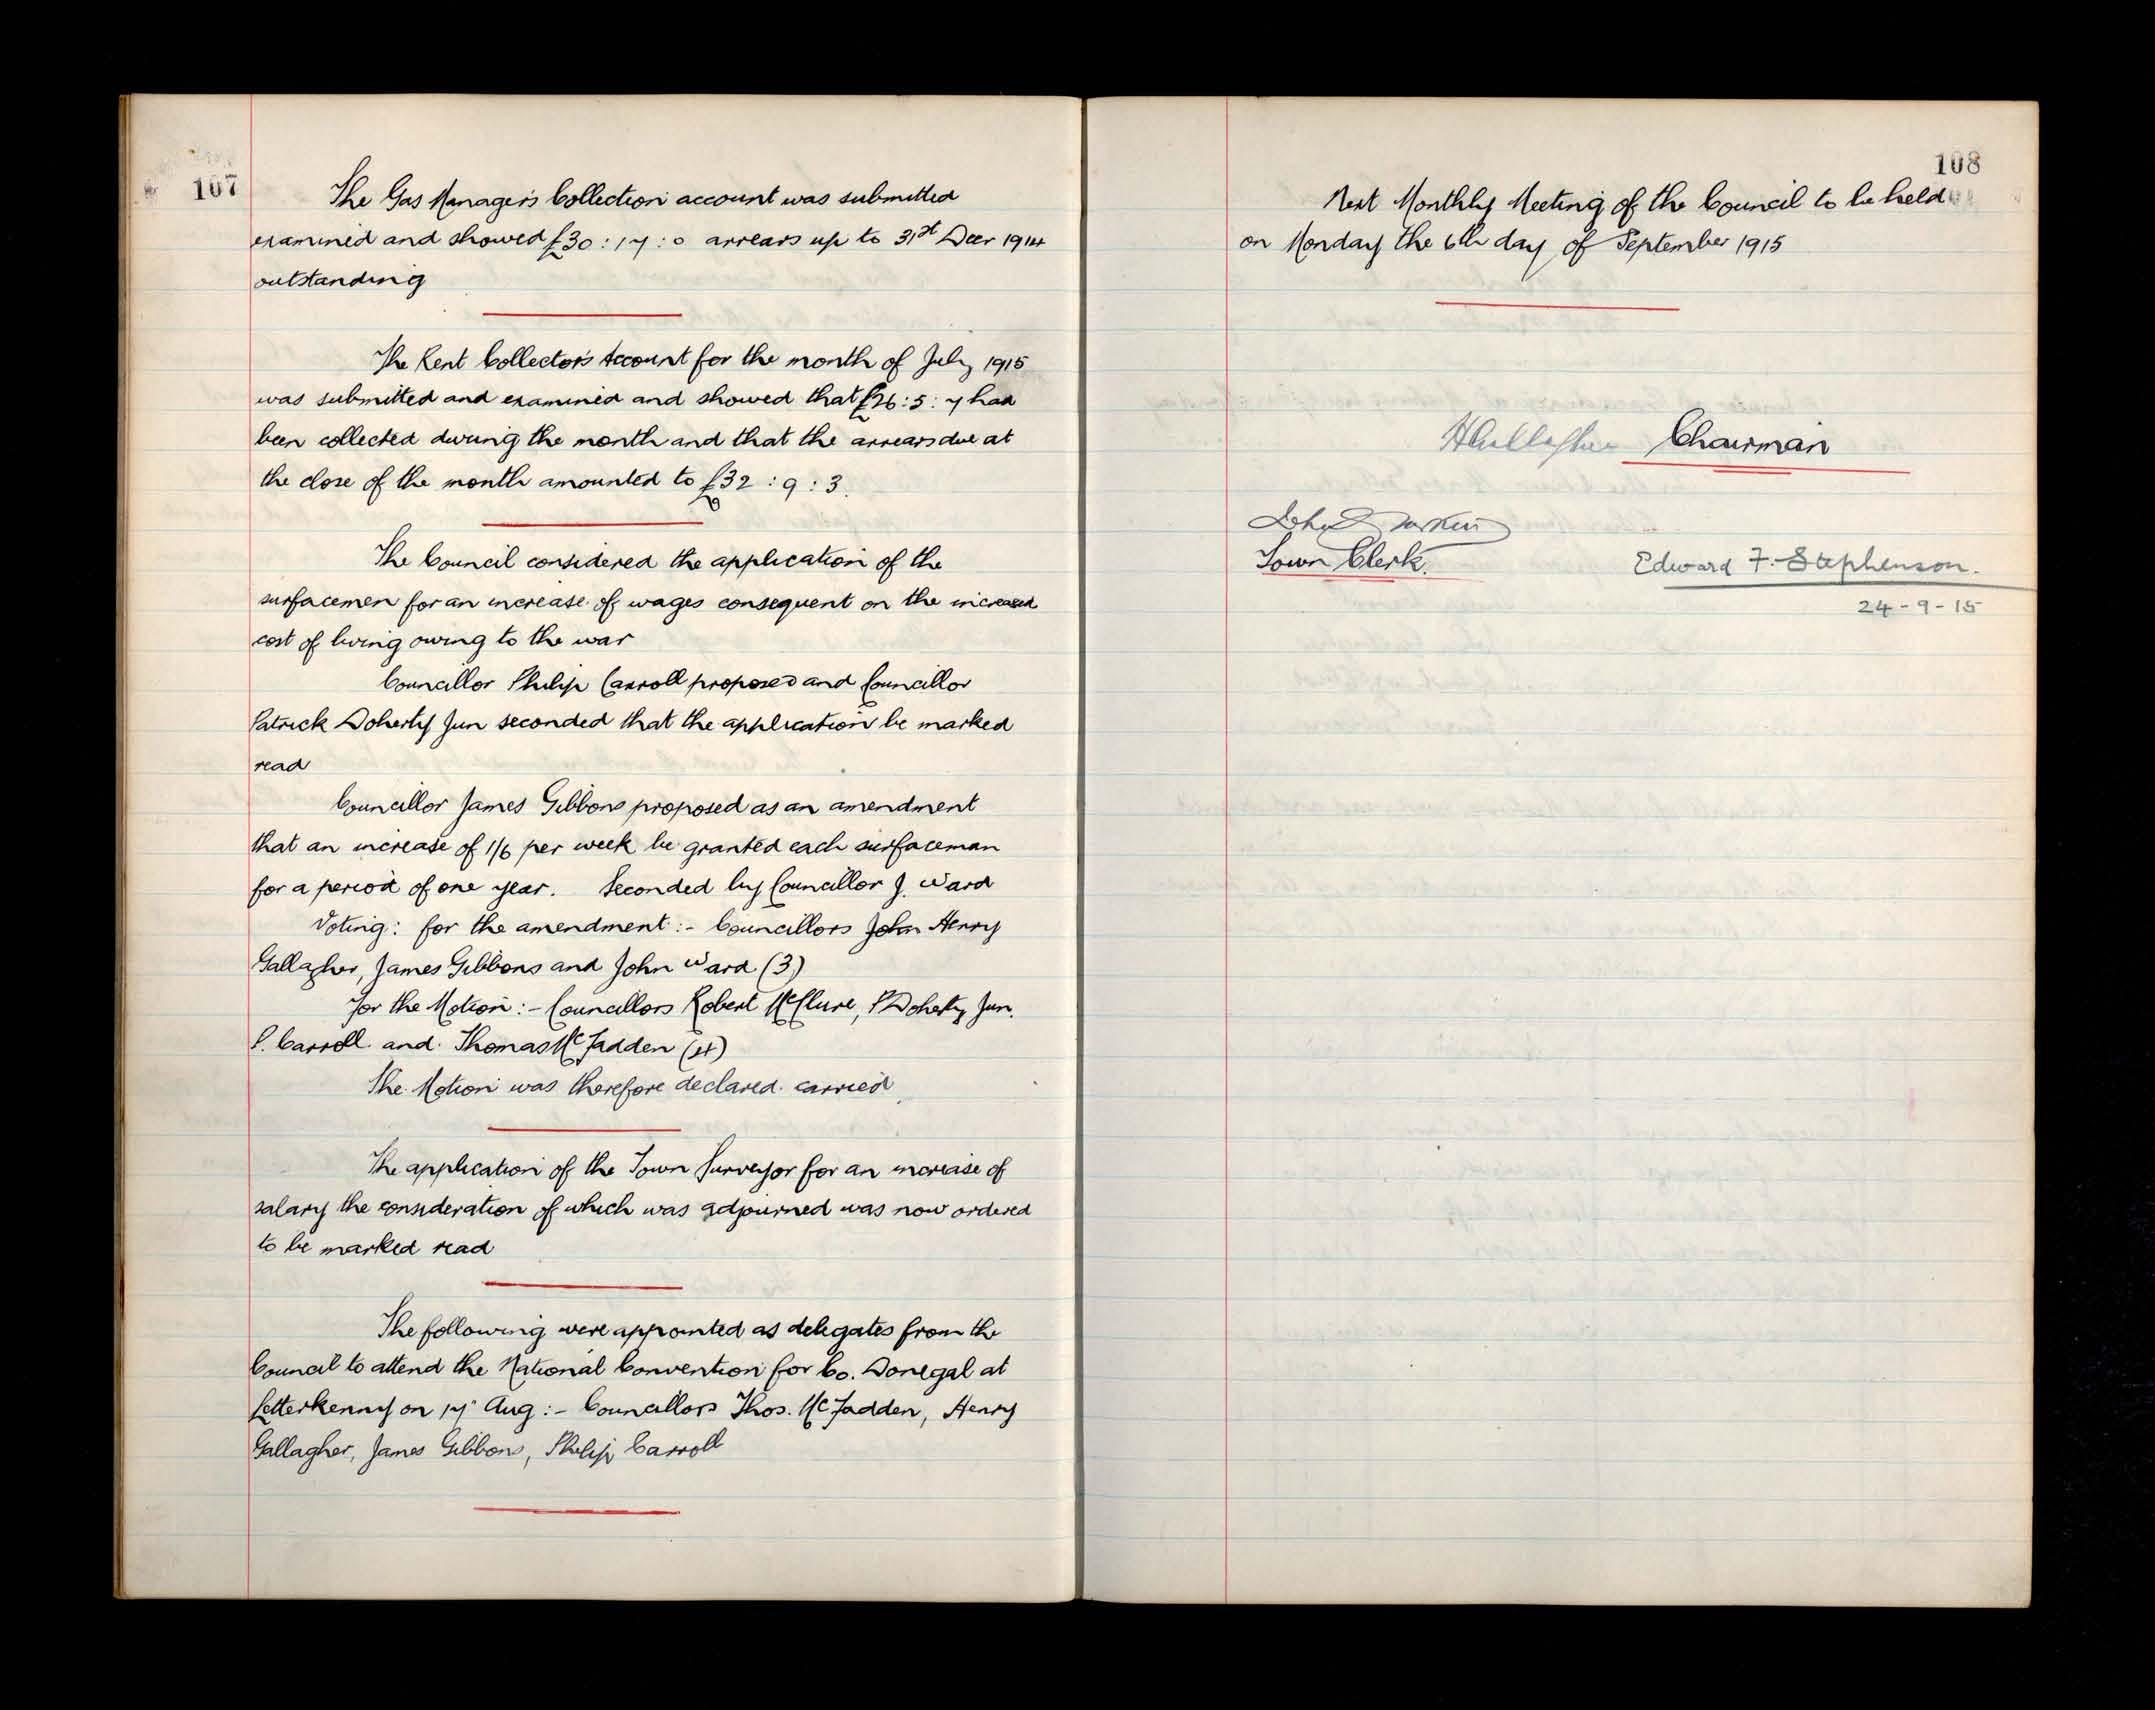 107
The Gas Manager's Collection account was submitted
examined and showed £30 : 17 : 0 arrears up to 31st Decr 1914
outstanding
The Rent Collector's Account for the month of July 1915
was submitted and examined and showed that £26 : 5 : 7 had
been collected during the month and that the arrears due at
the close of the month amounted to £32 : 9 : 3.
The Council considered the application of the
surfacemen for an increase of wages consequent on the increased
cost of living owing to the war
Councillor Philip Carroll proposed and Councillor
Patrick Doherty Jun seconded that the application be marked
read
Councillor James Gibbons proposed as an amendment
that an increase of 1/6 per week be granted each surfaceman
for a period of one year. Seconded by Councillor J. Ward
Voting: for the amendment :- Councillors John Henry
Gallagher, James Gibbons and John Ward (3)
For the Motion :- Councillors Robert McClure, P Doherty Jun.
P. Carroll and Thomas McFadden (4)
The Motion was therefore declared carried
The application of the Town Surveyor for an increase of
salary the consideration of which was adjourned was now ordered
to be marked read
The following were appointed as delegates from the
Council to attend the National Convention for Co. Donegal at
Letterkenny on 17 Aug :- Councillors Thos. McFadden, Henry
Gallagher, James Gibbons, Philip Carroll
108
Next Monthly Meeting of the Council to be held
on Monday the 6th day of September 1915
HGallagher Chairman
John
Town Clerk.
Edward F. Stephenson.
24-9-15